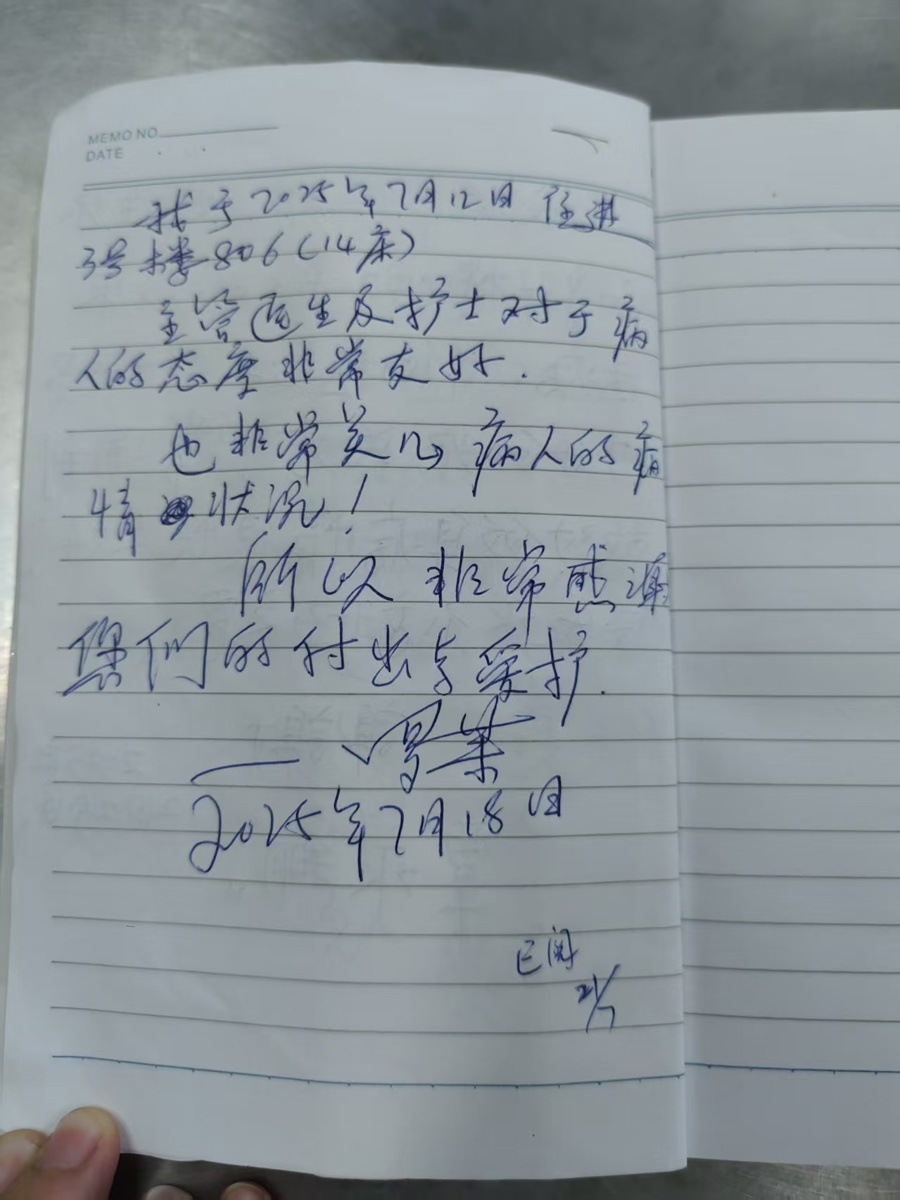 MEMO NO.
DATE
我于2025年7月12日 住进
3号楼806(14床)
主管医生及护士对于病
人的态度非常友好.
也非常关心病人的病
情状况!
所以非常感谢
您们的付出与爱护.
2025年7月18日
已阅
21/7